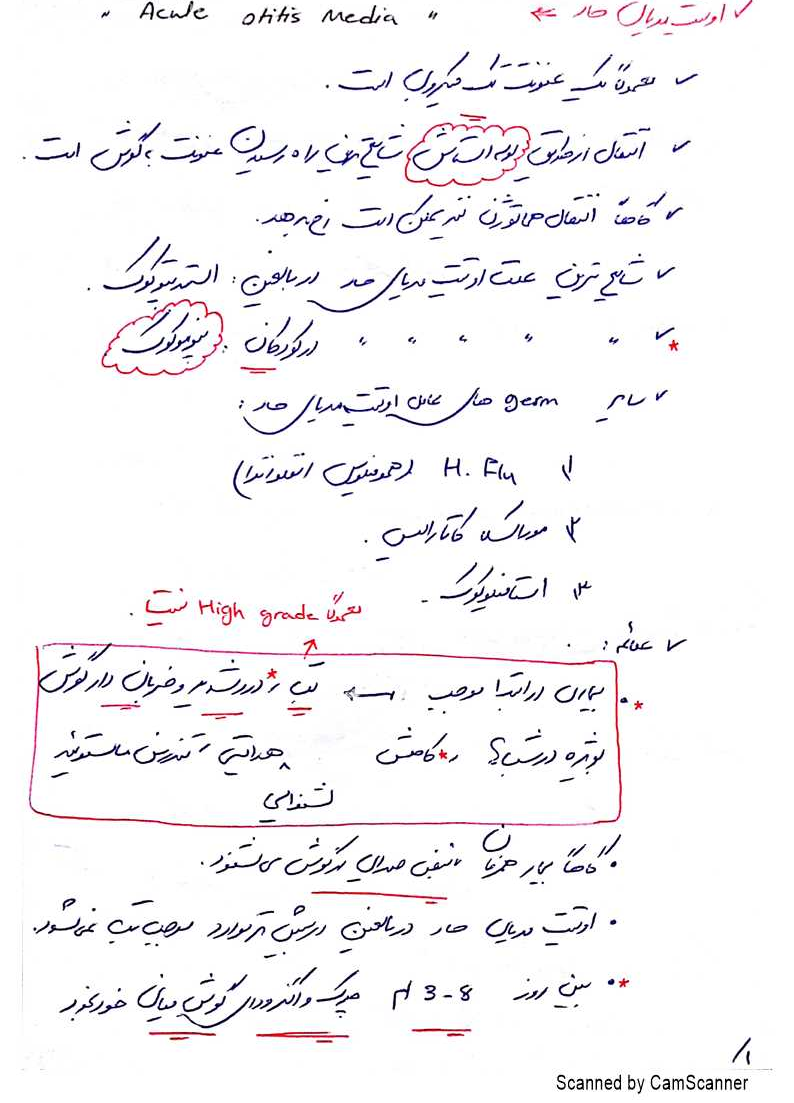 ✓ اوتیت مدیای حاد ⇐ " Acute otitis Media "
✓ معمولاً یک عفونت تک میکروبی است.
✓ انتقال از طریق لوله استاش شایع ترین راه رسیدن عفونت به گوش است.
✓ گاهاً انتقال هماتوژن نیز ممکن است رخ بدهد.
✓ شایع ترین علت اوتیت مدیای حاد در بالغین: استرپتوکوک.
* ✓ " " " " " در کودکان: پنوموکوک
✓ سایر germ های عامل اوتیت مدیای حاد:
۱) H. Flu (هموفیلوس انفلوانزا)
۲) موراکسلا کاتارالیس.
۳) استافیلوکوک.
معمولاً High grade نیست.
✓ علائم:
* • بیماری در ابتدا موجب ← تب، *درد شدید و ضربان دار گوش
بویژه در شب؟، *کاهش شنوایی هدایتی، تندرنس ماستوئید
• گاهاً بیمار همزمان با نبض صدای در گوش می شنود.
• اوتیت مدیای حاد در بالغین در بیش تر موارد موجب تب نمی شود.
* • بین روز 3-8 اُم چرک و اگزودای گوش میانی خودبخود
۱/
Scanned by CamScanner